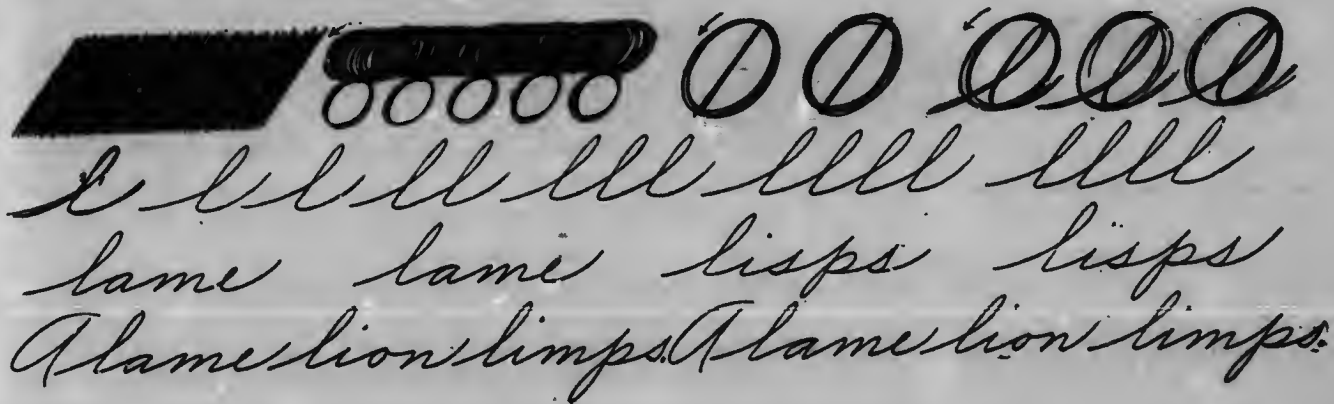 l l l l ll lll llll llll
lame lame lisps lisps
A lame lion limps. A lame lion limps.